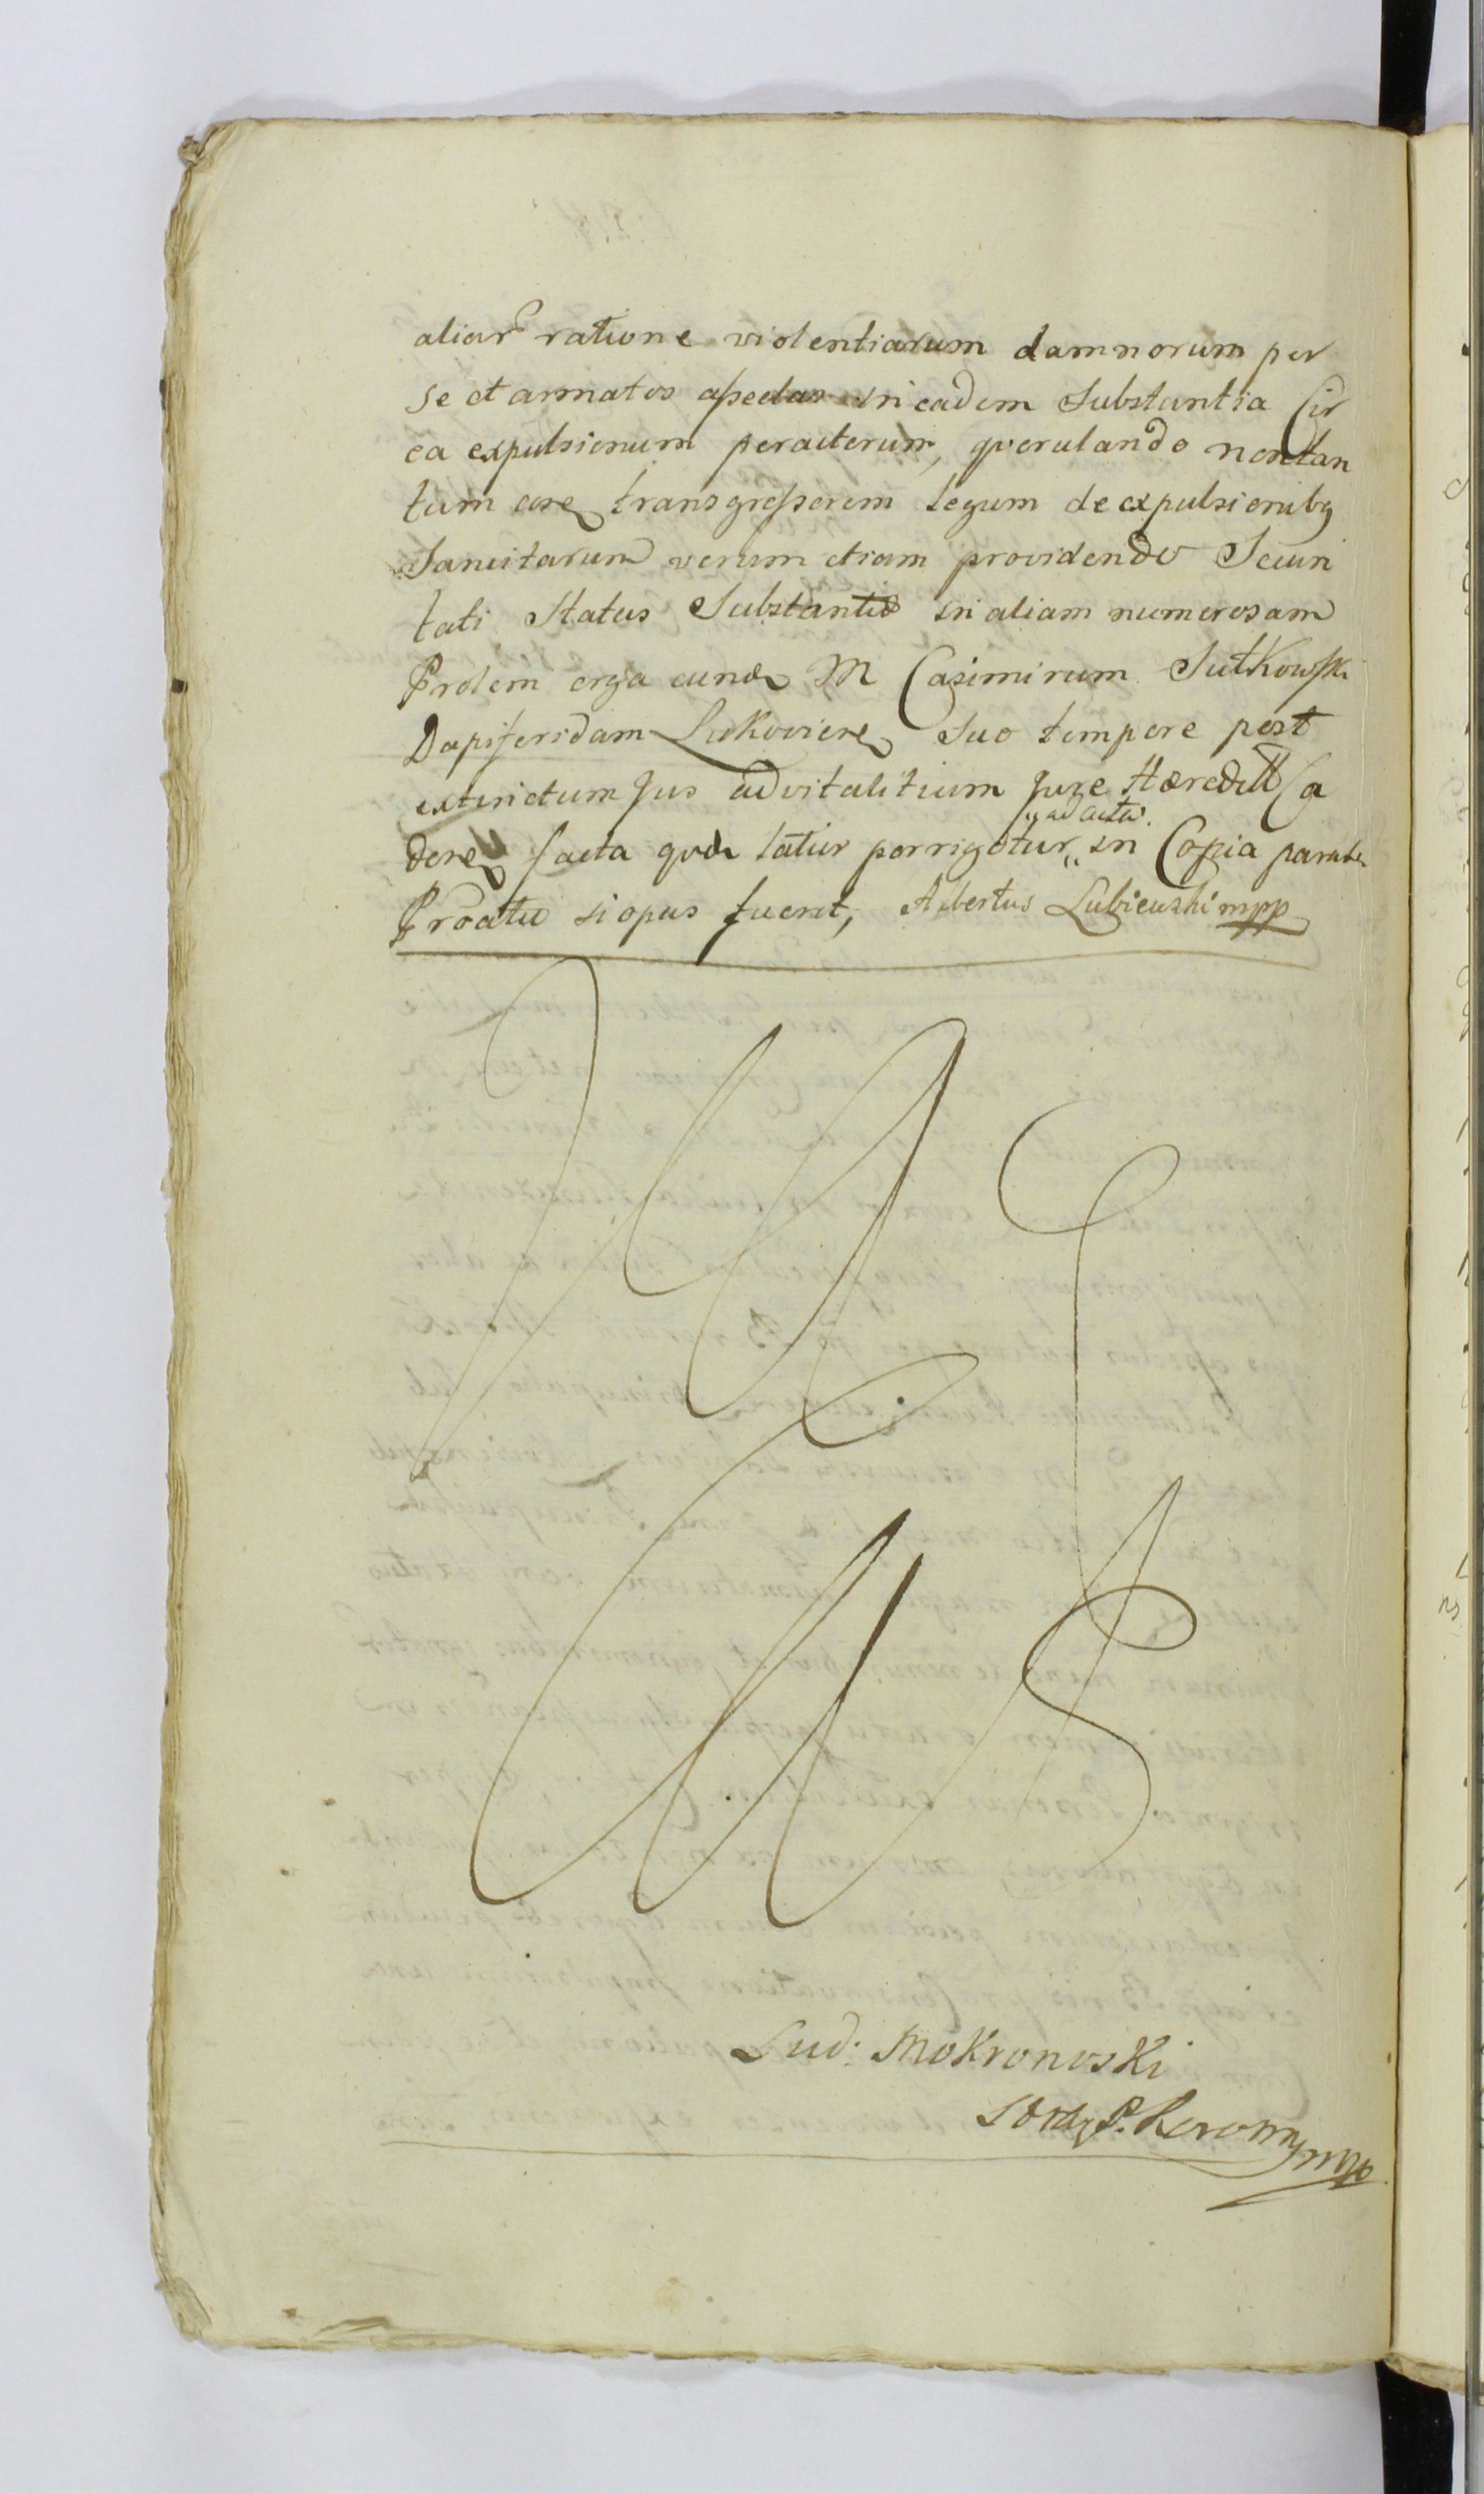 aliar ratione violentiarum damnorum per
se et armatos asseclas in eadem Substantia Cir
ca expulsionum peracterum, qverulando nontan
tum eoꝝ transgreſsorem legum de expulsionibꝫ
Sancitarum verum etiam providendo Secun
tati Status Substantiæ in aliam numerosam
Prolem erga eund M Casimirum Sutkowski
Dapiferidam Lukovien Suo tempore post
extinctum Jus advitalitium jure Hæredit Ca
den facta qvde latur porrigotur in Copia parata
"ad acta"
Proatu si opus fuerit, Albertus Lubienshi mpp
Lud: Mokronoski